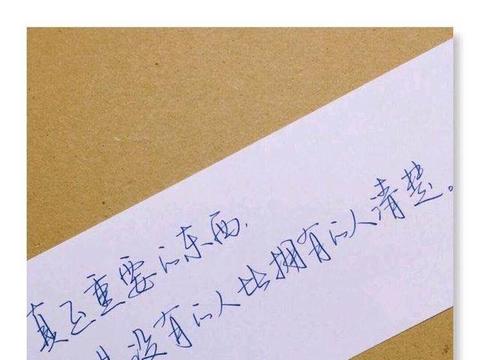 真正重要的东西
没有的人比拥有的人清楚。